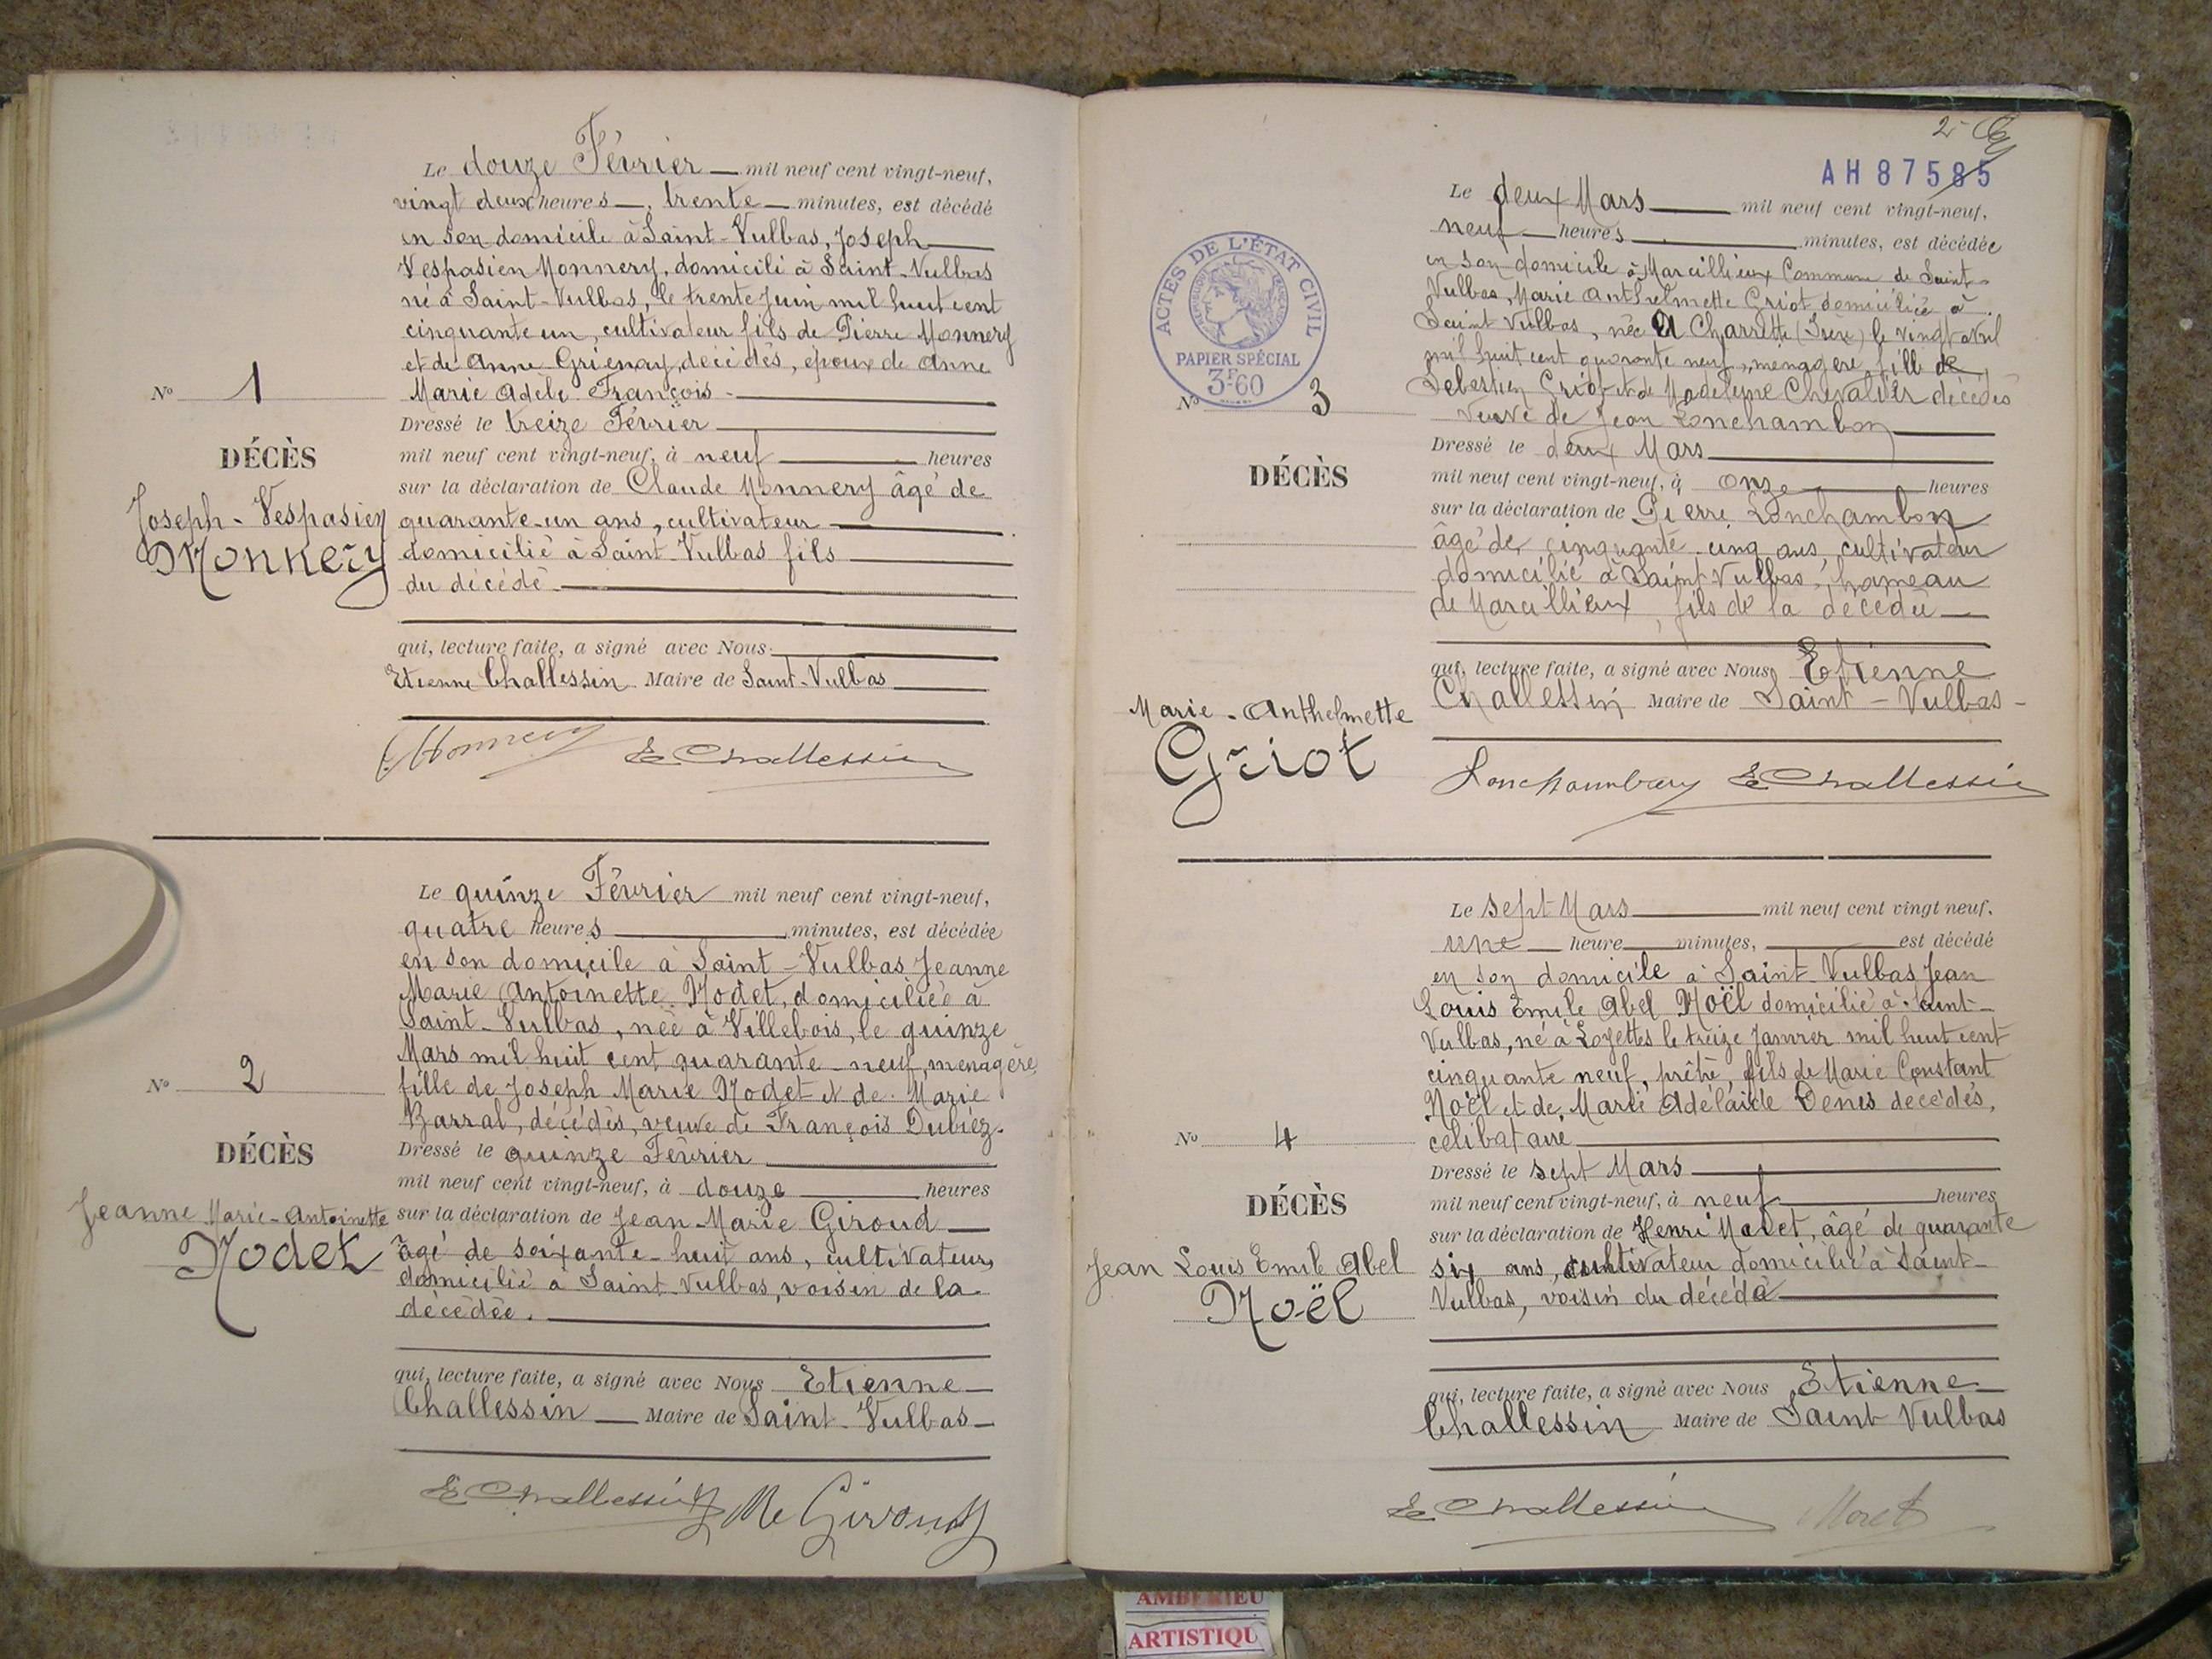 Le douze Février mil neuf cent vingt-neuf,
vingt deux heures, trente minutes, est décédé
en son domicile à Saint-Vulbas, Joseph
Vespasien Monnery, domicilié à Saint-Vulbas
né à Saint-Vulbas, le trente Juin mil huit cent
cinquante un, cultivateur fils de Pierre Monnery
et de Anne Grienay, décédés, époux de Anne
Marie Adèle François
Nº 1
Dressé le treize Février
DÉCÈS
mil neuf cent vingt-neuf, à neuf heures
sur la déclaration de Claude Monnery âgé de
Joseph-Vespasien
quarante-un ans, cultivateur
Monnery
domicilié à Saint-Vulbas fils
du décédé
qui, lecture faite, a signé avec Nous
Etienne Challessin Maire de Saint-Vulbas
C. Monnery E Challessin
Le quinze Février mil neuf cent vingt-neuf,
quatre heures minutes, est décédée
en son domicile à Saint-Vulbas Jeanne
Marie Antoinette Nodet, domiciliée à
Saint-Vulbas, née à Villebois, le quinze
Mars mil huit cent quarante-neuf, ménagère,
Nº 2
fille de Joseph Marie Nodet et de Marie
Barral, décédés, veuve de François Dubiez.
DÉCÈS
Dressé le quinze Février
mil neuf cent vingt-neuf, à douze heures
Jeanne Marie-Antoinette
sur la déclaration de Jean-Marie Giroud
Nodet
âgé de soixante-huit ans, cultivateur,
domicilié à Saint-Vulbas, voisin de la
décédée.
qui, lecture faite, a signé avec Nous Etienne
Challessin Maire de Saint-Vulbas
E Challessin J Me Giroud
2
AH 87585
Le deux Mars mil neuf cent vingt-neuf,
neuf heures minutes, est décédée
en son domicile à Marcillieux Commune de Saint-
Vulbas, Marie Anthelmette Griot domiciliée à
Saint Vulbas, née à Charrette (Isère) le vingt avril
mil huit cent quarante neuf, ménagère, fille de
Sebastien Griot et de Madeleine Chevalier décédés
veuve de Jean Lonchambon
ACTES DE L'ÉTAT CIVIL
RÉPUBLIQUE FRANÇAISE
PAPIER SPÉCIAL
3F60
Nº 3
Dressé le deux Mars
DÉCÈS
mil neuf cent vingt-neuf, à onze heures
sur la déclaration de Pierre Lonchambon
âgé de cinquante cinq ans, cultivateur
domicilié à Saint Vulbas, hameau
de Marcillieux, fils de la décédée
qui, lecture faite, a signé avec Nous Etienne
Challessin Maire de Saint-Vulbas
Marie-Anthelmette
Griot
Lonchambon E Challessin
Le sept Mars mil neuf cent vingt neuf.
une heure minutes, est décédé
en son domicile à Saint-Vulbas Jean
Louis Emile Abel Noël domicilié à Saint-
Vulbas, né à Loyettes le treize Janvier mil huit cent
cinquante neuf, prêtre, fils de Marie Constant
Noël et de Marie Adélaïde Denis décédés,
Nº 4
célibataire
Dressé le sept Mars
DÉCÈS
mil neuf cent vingt-neuf, à neuf heures
sur la déclaration de Henri Moret, âgé de quarante
Jean Louis Emile Abel
six ans, cultivateur domicilié à Saint-
Noël
Vulbas, voisin du décédé
qui, lecture faite, a signé avec Nous Etienne
Challessin Maire de Saint Vulbas
E Challessin Moret
AMBERIEU
ARTISTIQU